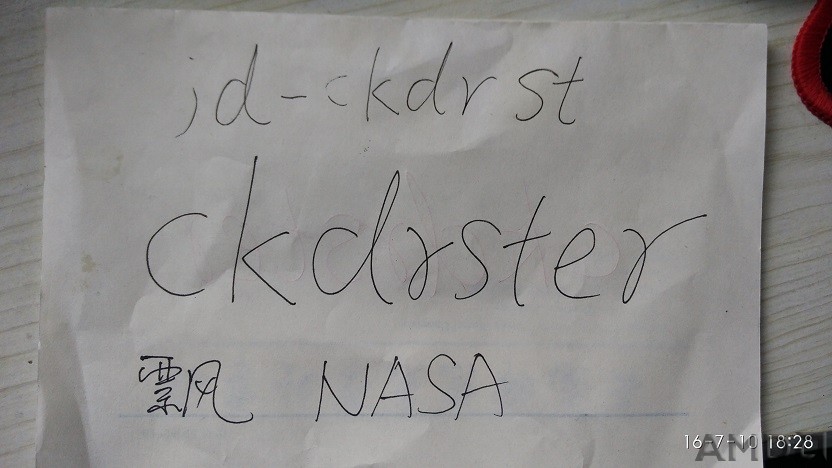 jd-ckdrst
ckdrster
飘 NASA
16-7-10 18:28